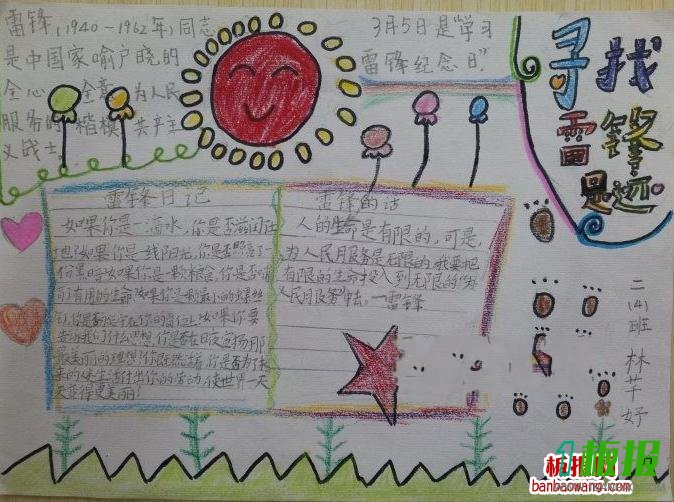 雷锋(1940-1962年)同志
是中国家喻户晓的
全心 全意 为人民
服务的 楷模 共产主
义战士
3月5日是"学习
雷锋纪念日"
寻找
雷锋
足迹
雷锋日记
如果你是一滴水,你是否滋润
如果你是一线阳光,你是否照亮了
一份黑暗如果你是一颗粮食,你是否
有用的生命如果你是最小的螺丝
钉,你是否
你的岗位上如果你要
告诉我们什么思想,你是否在日夜宣扬那
最美丽的理想?你既然活着,你是否为了未
来的
生活付出你的劳动,使世界一天
天变得更美丽!
雷锋的话
人的生命是有限的,可是,
为人民服务是无限的,我要把
有限的生命投入到无限的"为
人民服务"中去。一雷锋
二(4)班 林芊妤
板报网
板报
banbaowang.com